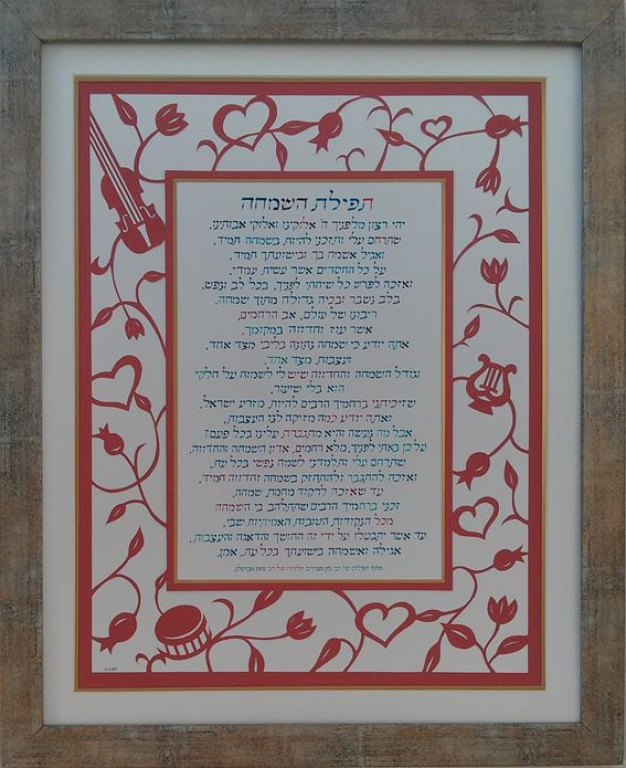 תפילת השמחה
יהי רצון מלפניך ה' אלוקינו ואלוקי אבותינו,
שתרחם עלי ותזכני להיות בשמחה תמיד,
ואגיל ואשמח בך ובישועתך תמיד,
על כל החסדים אשר עשית עמדי,
ואזכה לפרש כל שיחתי לפניך, בכל לב ונפש,
בלב נשבר ובכיה גדולה מתוך שמחה.
ריבונו של עולם, אב הרחמים,
אשר עוז וחדווה במקומך,
אתה יודע כי שמחה נתונה בליבי מצד אחד,
ועצבות מצד אחד,
וגודל השמחה והחדווה שיש לי לשמוח על חלקי
הוא בלי שיעור,
שזיכיתני ברחמיך הרבים להיות מזרע ישראל,
ואתה יודע כמה מזיקה לנו העצבות,
אבל מה נעשה והיא מתגברת עלינו בכל פעם?
על כן באתי לפניך, מלא רחמים, אדון השמחה והחדווה,
שתרחם עלי ותלמדני לשמח נפשי בכל עת,
ואזכה להתגבר ולהתחזק בשמחה וחדווה תמיד,
עד שאזכה לרקוד מחמת שמחה,
זכני ברחמיך הרבים שתתלהב בי השמחה
מכל הנקודות הטובות האמיתיות שבי,
עד אשר יתבטלו על ידי זה החושך והדאגה והעצבות,
אגילה ואשמחה בישועתך בכל עת, אמן.